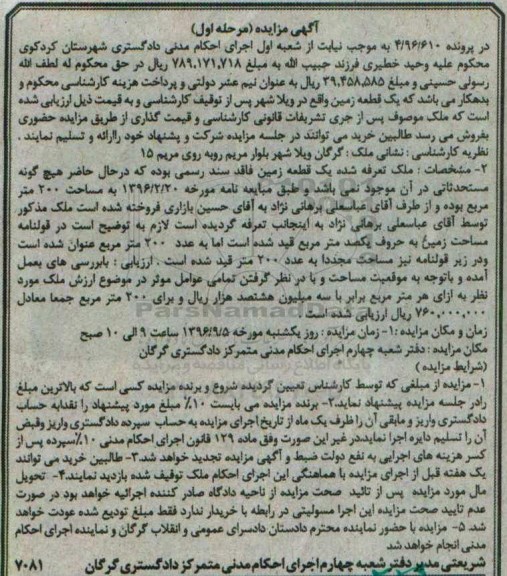 آگهی مزایده (مرحله اول)
در پرونده ۴/۹۶/۶۱۰ به موجب نیابت از شعبه اول اجرای احکام مدنی دادگستری شهرستان کردکوی
محکوم علیه وحید خطیری فرزند حبیب الله به مبلغ ۷۸۹.۱۷۱.۷۱۸ ریال در حق محکوم له لطف الله
رسولی حسینی و مبلغ ۳۹.۴۵۸.۵۸۵ ریال به عنوان نیم عشر دولتی و پرداخت هزینه کارشناسی محکوم و
بدهکار می باشد که یک قطعه زمین واقع در ویلا شهر پس از توقیف کارشناسی و به قیمت ذیل ارزیابی شده
است که ملک موصوف پس از جری تشریفات قانونی کارشناسی و قیمت گذاری از طریق مزایده حضوری
بفروش می رسد طالبین خرید می توانند در جلسه مزایده شرکت و پشنهاد خود راارائه و تسلیم نمایند .
نظریه کارشناسی : نشانی ملک : گرگان ویلا شهر بلوار مریم روبه روی مریم ۱۵
۲- مشخصات : ملک تعرفه شده یک قطعه زمین فاقد سند رسمی بوده که درحال حاضر هیچ گونه
مستحدثاتی در آن موجود نمی باشد . طبق مبایعه نامه مورخه ۱۳۹۶/۲/۲۰ به مساحت ۲۰۰ متر
مربع بوده و از طرف آقای عباسعلی برهانی نژاد به آقای حسین بازاری فروخته شده است ملک مذکور
توسط آقای عباسعلی برهانی نژاد به اینجانب تعرفه گردیده است لازم به توضیح است در قولنامه
مساحت زمین به حروف یکصد متر مربع قید شده است اما به عدد ۲۰۰ متر مربع عنوان شده است
ودر زیر قولنامه نیز مساحت مجددا به عدد ۲۰۰ متر قید شده است . ارزیابی : بابررسی های بعمل
آمده و باتوجه به موقعیت مساحت و با در نظر گرفتن تمامی عوامل موثر در موضوع ارزش ملک مورد
نظر به ازای هر متر مربع برابر با سه میلیون هشتصد هزار ریال و برای ۲۰۰ متر مربع جمعا معادل
۷۶۰,۰۰۰,۰۰۰ ریال ارزیابی شده است .
زمان و مکان مزایده :۱- زمان مزایده : روز یکشنبه مورخه ۱۳۹۶/۹/۵ ساعت ۹ الی ۱۰ صبح
مکان مزایده : دفتر شعبه چهارم اجرای احکام مدنی متمرکز دادگستری گرگان
(شرایط مزایده )
۱- مزایده از مبلغی که توسط کارشناس تعیین گردیده شروع و برنده مزایده کسی است که بالاترین مبلغ
رادر جلسه مزایده پیشنهاد نماید.۲- برنده مزایده می بایست ۱۰٪ مبلغ مورد پیشنهاد را نقدابه حساب
دادگستری واریز و مابقی آن را ظرف یک ماه از تاریخ اجرای مزایده به حساب سپرده دادگستری واریز وقبض
آن را تسلیم دایره اجرا نماید.در غیر این صورت وفق ماده ۱۲۹ قانون اجرای احکام مدنی ۱۰٪سپرده پس از
کسر هزینه های اجرایی به نفع دولت ضبط و آگهی مزایده تجدید خواهد شد.۳- طالبین خرید می توانند
یک هفته قبل از اجرای مزایده با هماهنگی این اجرای احکام ملک توقیف شده بازدید نمایند.۴- تحویل
مال مورد مزایده پس از تائید صحت مزایده از ناحیه دادگاه صادر کننده اجرائیه خواهد بود در صورت
عدم تایید صحت مزایده این اجرا مسولیتی در رابطه با خریدار ندارد فقط مبلغ تودیع شده عودت خواهد
شد. ۵- مزایده با حضور نماینده محترم دادستان دادسرای عمومی و انقلاب گرگان و نماینده اجرای احکام
مدنی انجام خواهد شد
شریعتی مدیر دفتر شعبه چهارم اجرای احکام مدنی متمرکز دادگستری گرگان ۷۰۸۱